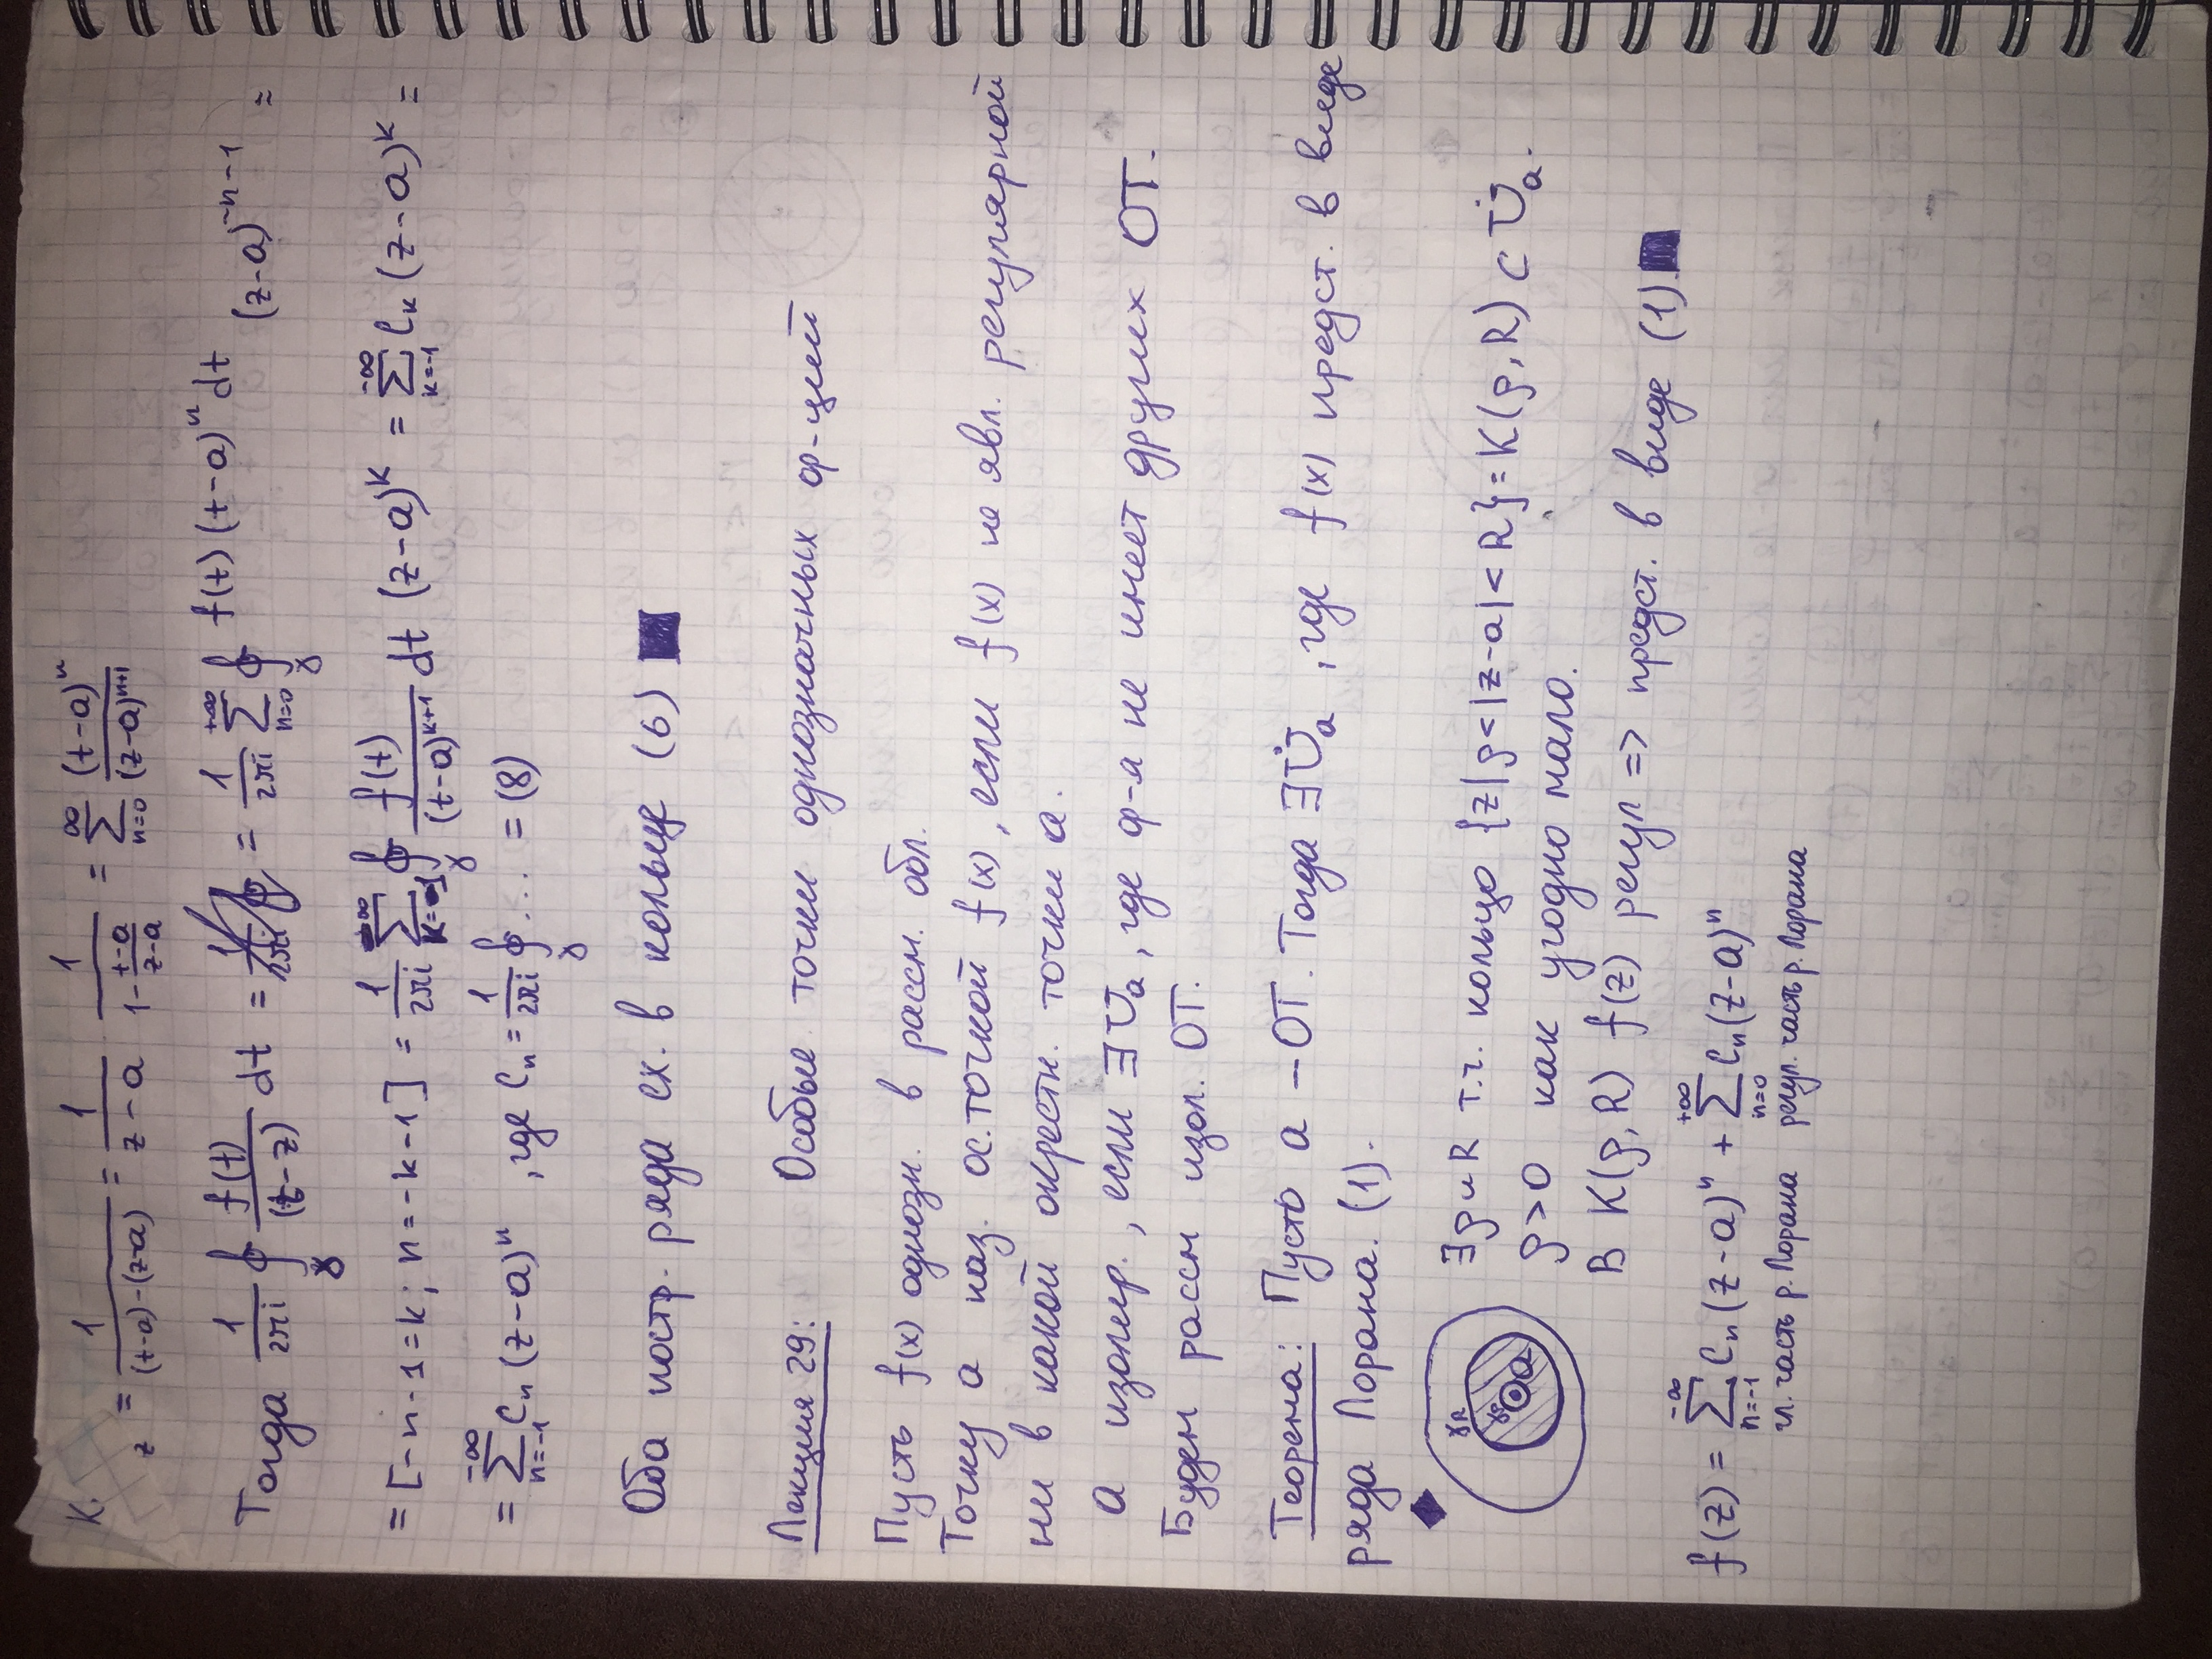 z = 1/((t-a)-(z-a)) = 1/(z-a) · 1/(1-(t-a)/(z-a)) = ∑_{n=0}^{∞} (t-a)^n/(z-a)^{n+1}
Тогда 1/(2πi) ∮_γ f(t)/(t-z) dt = = 1/(2πi) ∑_{n=0}^{+∞} ∮_γ f(t)(t-a)^n dt (z-a)^{-n-1} =
= [-n-1=k; n=-k-1] = 1/(2πi) ∑_{k=-1}^{-∞} ∮_γ f(t)/(t-a)^{k+1} dt (z-a)^k = ∑_{k=-1}^{-∞} C_k (z-a)^k =
= ∑_{n=-1}^{-∞} C_n (z-a)^n , где C_n = 1/(2πi) ∮_γ ... = (8)
Оба постр. ряда сх. в кольце (6) ■
Лекция 29: Особые точки однозначных ф-ций
Пусть f(x) однозн. в рассм. обл.
Точку a наз. ос.точкой f(x), если f(x) не явл. регулярной
ни в какой окрестн. точки a.
a изолир., если ∃ U_a, где ф-я не имеет других ОТ.
Будем рассм изол. ОТ.
Теорема: Пусть a – ОТ. Тогда ∃ U̇_a , где f(x) предст. в виде
ряда Лорана. (1).
γ_R
γ_ρ a
∃ ρ и R т.ч. кольцо {z| ρ<|z-a|<R} = K(ρ,R) ⊂ U̇_a.
ρ>0 как угодно мало.
В K(ρ,R) f(z) регул => предст. в виде (1).■
f(z) = ∑_{n=-1}^{-∞} C_n(z-a)^n + ∑_{n=0}^{+∞} C_n(z-a)^n
гл. часть р. Лорана регул. часть р. Лорана